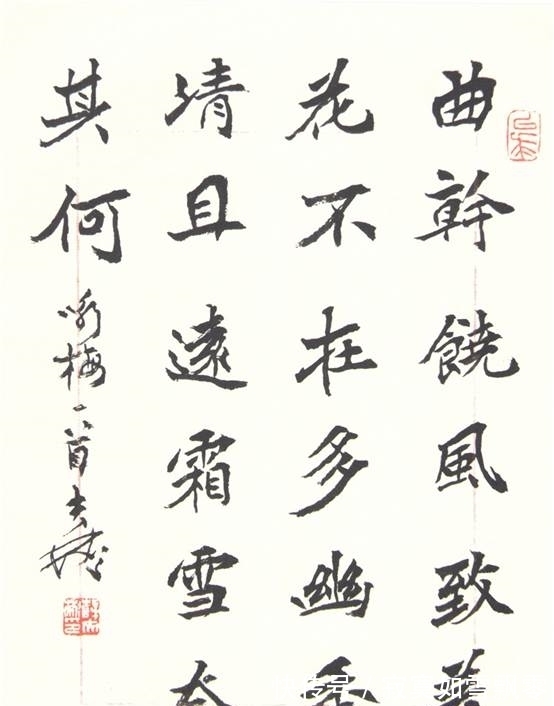 曲幹饒風致
花不在多幽
清且遠霜雪
其何
咏梅一首